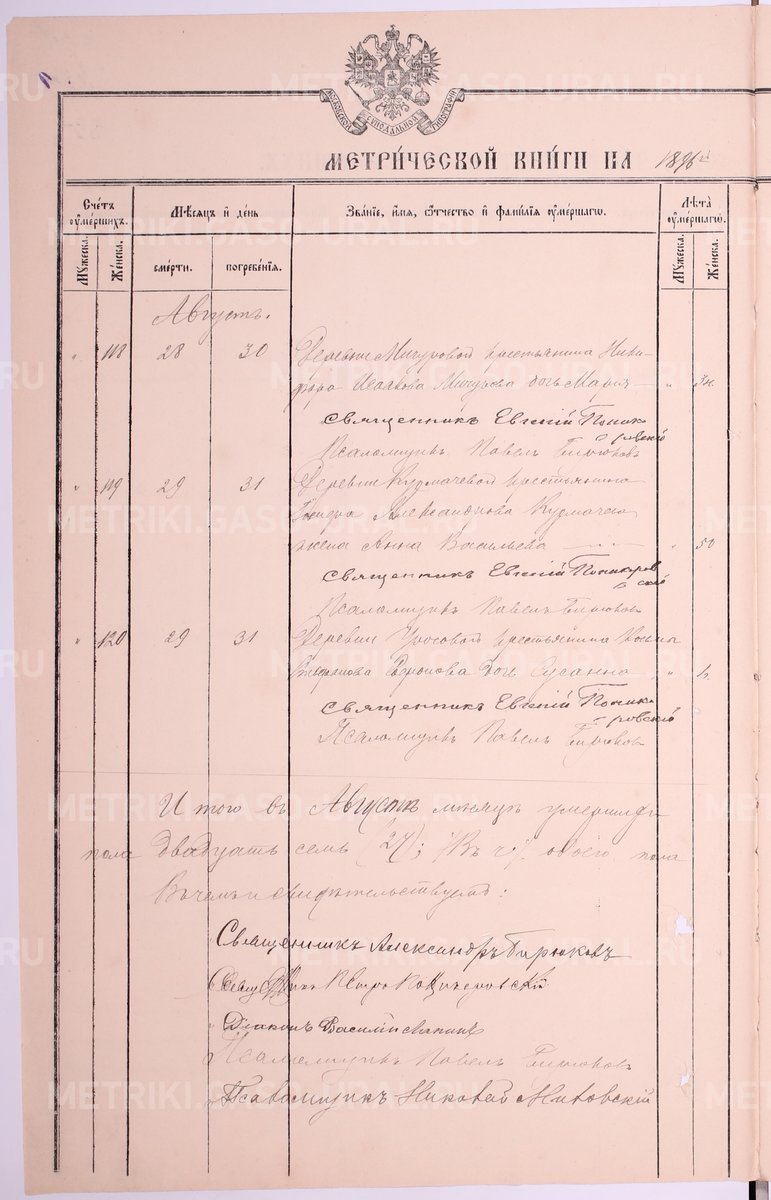 МОСКОВСКОЙ СѴНОДАЛЬНОЙ ТИПОГРАФІИ
МЕТРИЧЕСКОЙ КНИГИ НА 1896й
Счетъ умершихъ.
Мужеска. Женска.
Мѣсяцъ и день
смерти. погребенія.
Званіе, имя, отчество и фамилія умершаго.
Лѣта умершаго.
Мужеска. Женска.
Августъ.
" 118 28 30 Деревни Мичуровой крестьянина Ники-
фора Мичурова дочь Марія "
Священникъ Евгеній Поникаровскій
Псаломщикъ Павелъ Бирюковъ
" 119 29 31 Деревни Курмачевой крестьянина
Александрова Курмачева
жена Анна Васильева " 50
Священникъ Евгеній Поникаровскій
Псаломщикъ Павелъ Бирюковъ
" 120 29 31 Деревни крестьянина
дочь Сусанна "
Священникъ Евгеній Поникаровскій
Псаломщикъ Павелъ Бирюковъ
Итого въ Августѣ мѣсяцѣ умерших
пола двадцать семь (27); обоего пола
В чемъ и свидѣтельствуемъ:
Священникъ Александръ Бирюковъ
Петръ
Діаконъ Василій
Псаломщикъ Павелъ Бирюковъ
Псаломщикъ Николай
METRIKI.GASO-URAL.RU